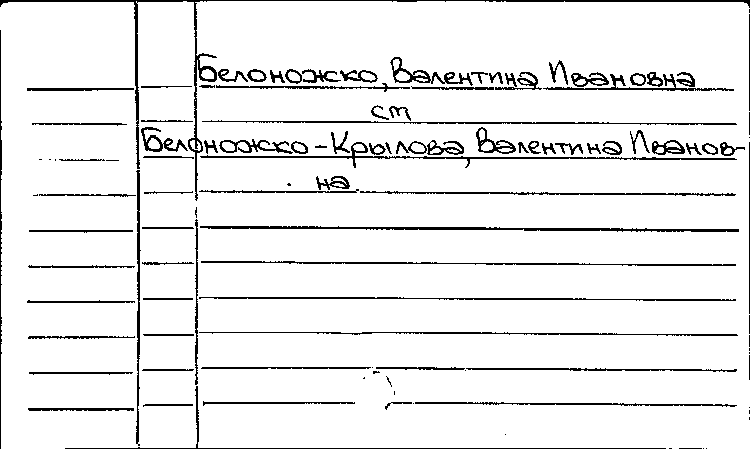 Белоножско, Валентина Ивановна
см
Белоножско-Крылова, Валентина Иванов-
на.